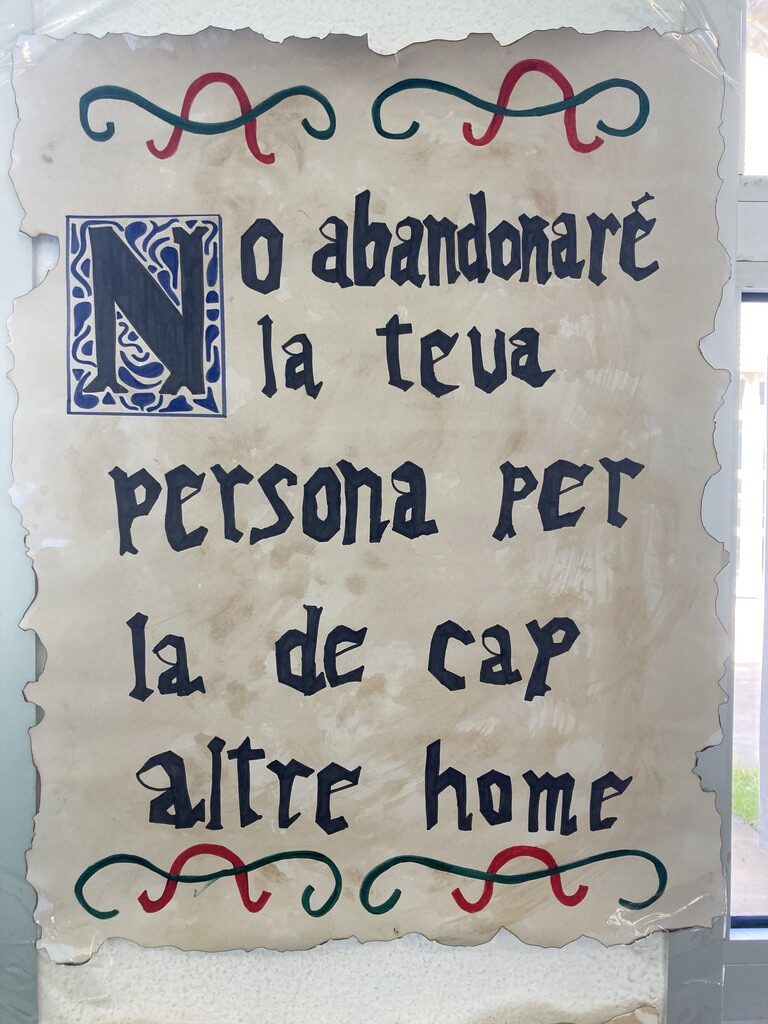 No abandonaré
la teva
persona per
la de cap
altre home